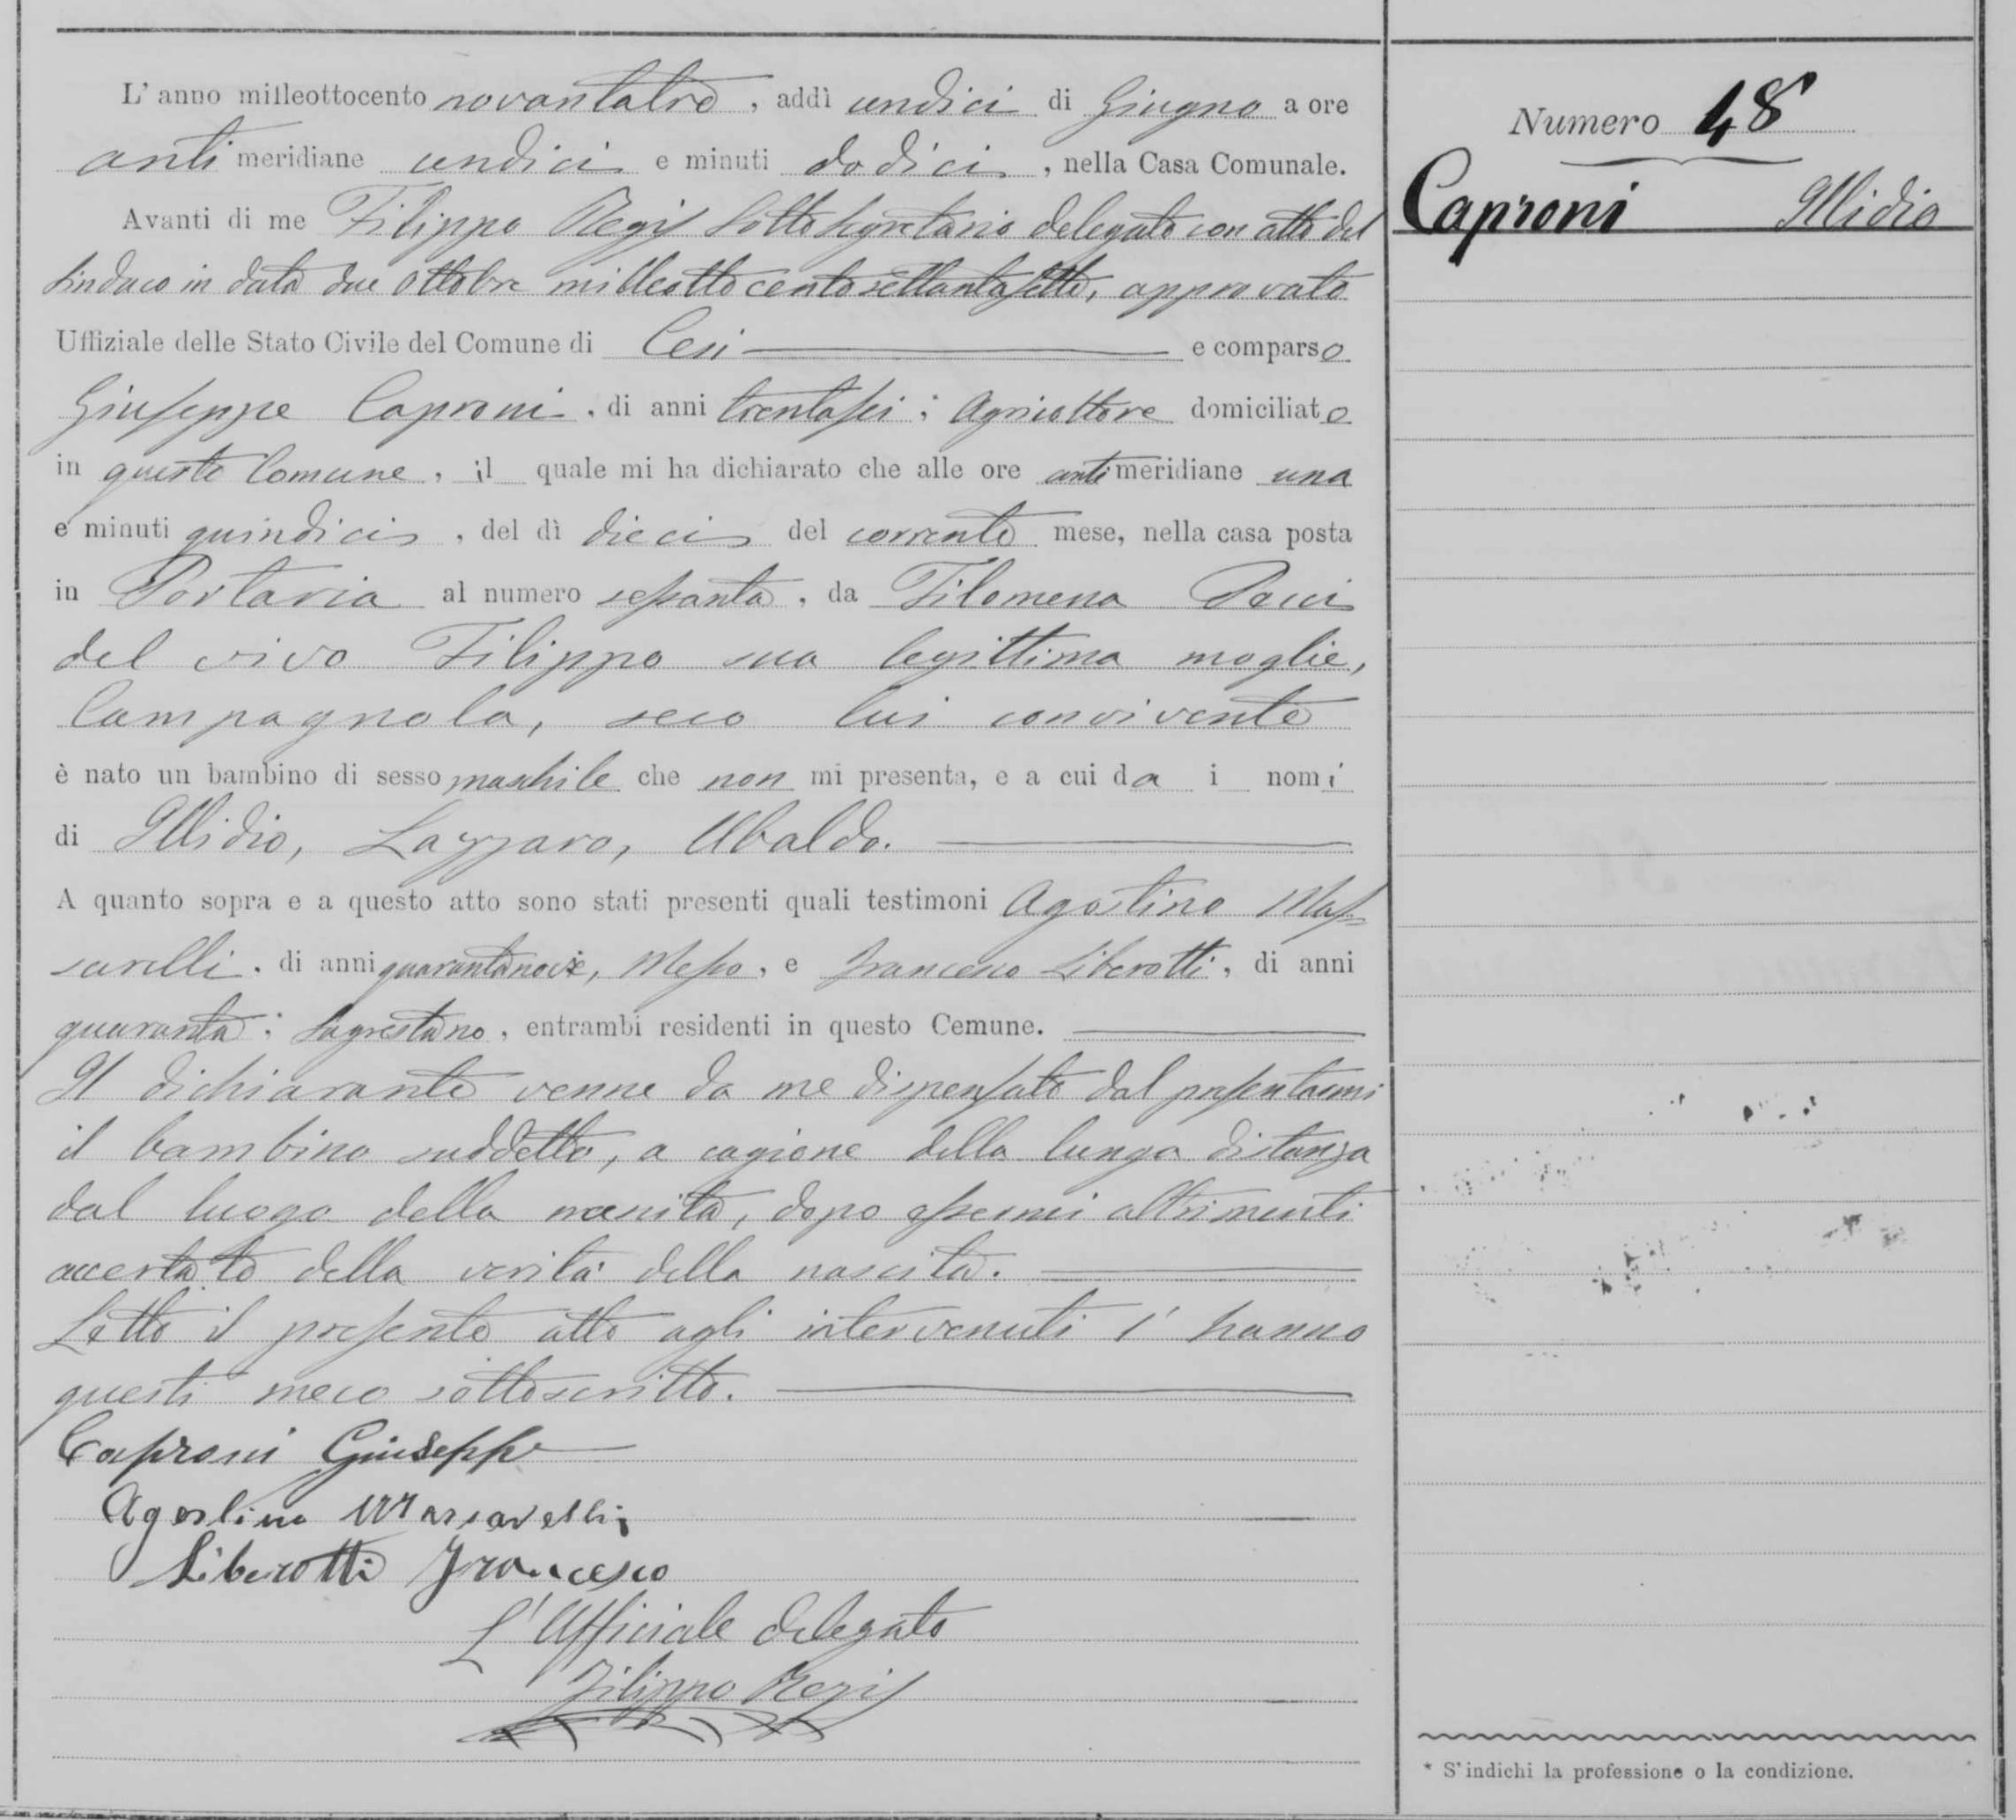 L' anno milleottocento novantatre, addì undici di Giugno a ore
anti meridiane undici e minuti dodici, nella Casa Comunale.
Avanti di me Filippo Regis Sotto Segretario delegato con atto del
Sindaco in data due Ottobre milleottocentosettantasette, approvato
Uffiziale delle Stato Civile del Comune di Cesi e comparso
Giuseppe Caproni, di anni trentasei; Agricoltore domiciliato
in questo Comune, il quale mi ha dichiarato che alle ore antimeridiane una
e minuti quindici, del dì dieci del corrente mese, nella casa posta
in Portaria al numero sessanta, da Filomena Pacci
del vivo Filippo sua legittima moglie,
Campagnola, seco lui convivente
è nato un bambino di sesso maschile che non mi presenta, e a cui da i nomi
di Illidio, Lazzaro, Ubaldo.
A quanto sopra e a questo atto sono stati presenti quali testimoni Agostino Mas=
sarelli, di anni quarantanove, Messo, e Francesco Liberotti, di anni
quaranta; Sagrestano, entrambi residenti in questo Cemune.
Il dichiarante venne da me dispensato dal presentarmi
il bambino suddetto, a cagione della lunga distanza
dal luogo della nascita, dopo essermi altrimenti
accertato della verità della nascita.
Letto il presente atto agli intervenuti l' hanno
questi meco sottoscritto.
Caproni Giuseppe
Agostino Massarelli
Liberotti Francesco
L'Ufficiale delegato
Filippo Regis
Numero 48
Caproni Illidio
* S'indichi la professione o la condizione.